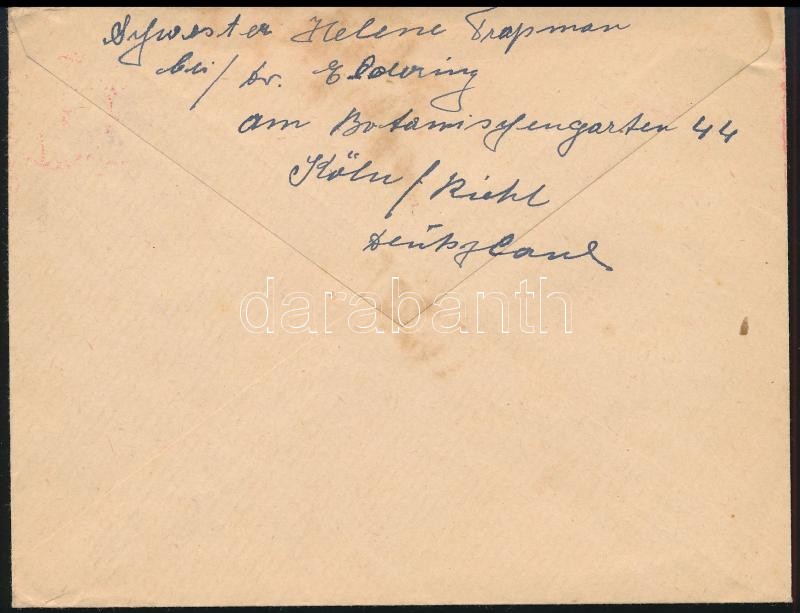 Schwester Helene Trapman
bei / Dr. Eldering
am Botanischengarten 44
Köln / Riehl
Deutschland
darabanth